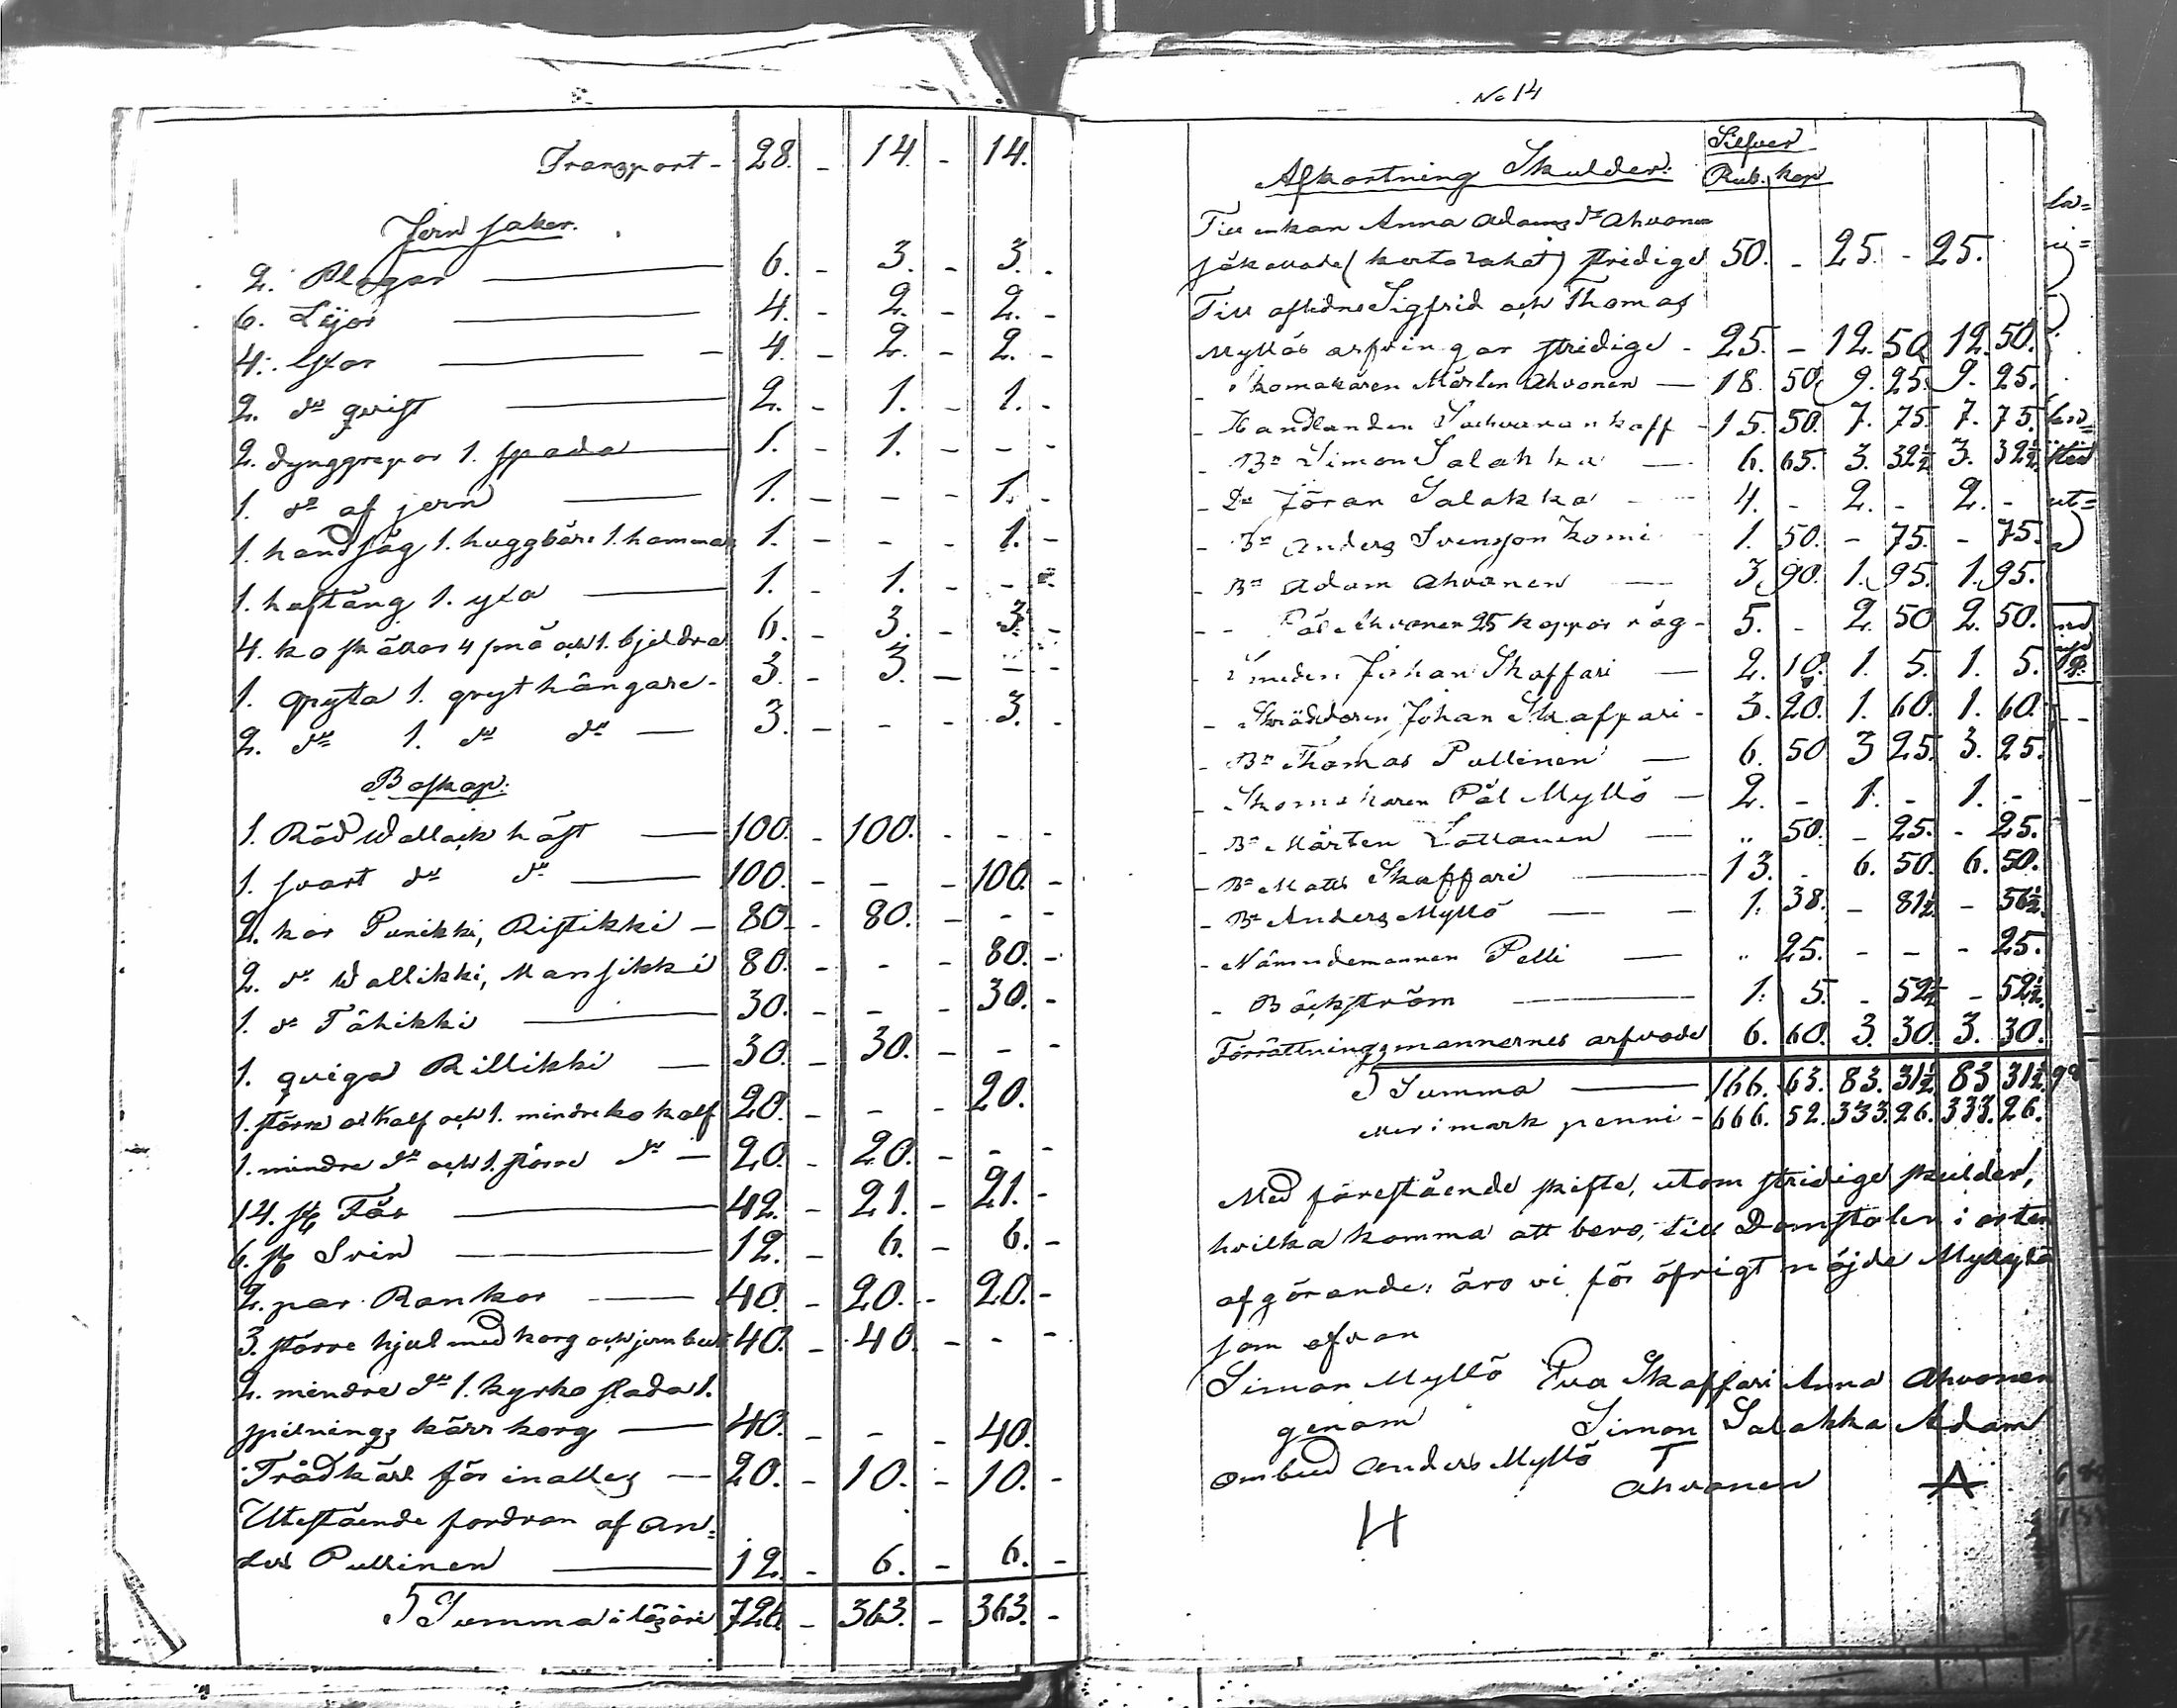 Transport - 28. - 14. - 14.
Jern saker.
2. Plogar — 6. - 3. - 3. -
6. Lijor — 4. - 2. - 2. -
4. Yxor — 4. - 2. - 2. -
2. d:o qvist — 2. - 1. - 1. -
2. dynggrepar 1. spada — 1. - 1. - - -
1. d:o af jern — 1. - - - 1. -
1. handsåg 1. huggbär 1. hammar 1. - - - 1. -
1. haftång 1. yxa — 1. - 1. - - -
4. ko skällor 4 små och 1. bjeldra 6. - 3. - 3. -
1. gryta 1. gryt hängare - 3. - 3. - - -
2. d:o 1. d:o d:o — 3. - - - 3. -
Boskap:
1. Röd Wallack häst — 100. - 100. - - -
1. svart d:o d:o — 100. - - - 100. -
2. kor Punikki, Ristikki - 80. - 80. - - -
2. d:o Wallikki, Mansikki 80. - - - 80. -
1. d:o Tähikki — 30. - - - 30. -
1. qviga Rillikki — 30. - 30. - - -
1. större kalf och 1. mindre ko kalf 20. - - - 20.
1. mindre d:o och 1. större d:o — 20. - 20. - - -
14. st Får — 42. - 21. - 21. -
6. st Svin — 12. - 6. - 6. -
2. par Rankor — 40. - 20. - 20. -
3. större hjul med korg och jern 40. - 40. - - -
2. mindre d:o 1. kyrko slada 1.
spilnings kärr korg — 40. - - - 40.
Trädkärl för inalles — 20. - 10. - 10. -
Utestående fordran af An=
ders Pullinen — 12. - 6. - 6. -
Summa i lösöre 726. - 363. - 363. -
No 14
Silfver
Afkortning Skulder: Rub. kop
Till enkan Anna Adams d:r Ahvonen
sökande stridige 50. - 25. - 25.
Till aflidne Sigfrid och Thomas
Myllös arfvingar stridige - 25. - 12. 50. 12. 50.
- Skomakären Mårten Ahvonen — 18. 50. 9. 25. 9. 25.
- Handlanden - 15. 50. 7. 75. 7. 75.
- B:n Simon Salakka — 6. 65. 3. 32½ 3. 32½
- D:o Jöran Salakka - 4. - 2. - 2. -
- B:n Anders Svensson Komi - 1. 50. - 75. - 75.
- B:n Adam Ahvonen — 3. 90. 1. 95. 1. 95.
- - Pål Ahvonen 25 kappor råg - 5. - 2. 50 2. 50.
- Smeden Johan Skaffari — 2. 10. 1. 5. 1. 5.
- Skräddaren Johan Skaffari - 3. 20. 1. 60. 1. 60.
- B:n Thomas Pullinen — 6. 50 3 25. 3. 25.
- Skomakaren Pål Myllö — 2. - 1. - 1. -
- B:n Mårten Lattonen — „ 50. - 25. - 25.
- B:n Matts Skaffari — 13. - 6. 50. 6. 50.
- B:n Anders Myllö — 1. 38. - 81½ - 56½
- Nämndemannen Pelli — „ 25. - - - 25.
- Bäckström — 1. 5. - 52½ - 52½
Förrättningsmannernes arfvode 6. 60. 3. 30. 3. 30.
Summa — 166. 63. 83. 31½ 83 31½
eller i mark penni - 666. 52. 333. 26. 333. 26.
Med förestående skifte, utom stridige skulder,
hvilka komma att bero, till Domstolen i orten
afgörande, äro vi för öfrigt nöjde Myllylä
som ofvan
Simon Myllö Eva Skaffari Anna Ahvonen
genom Simon Salakka Adam
ombud Anders Myllö T
Ahvonen A
H